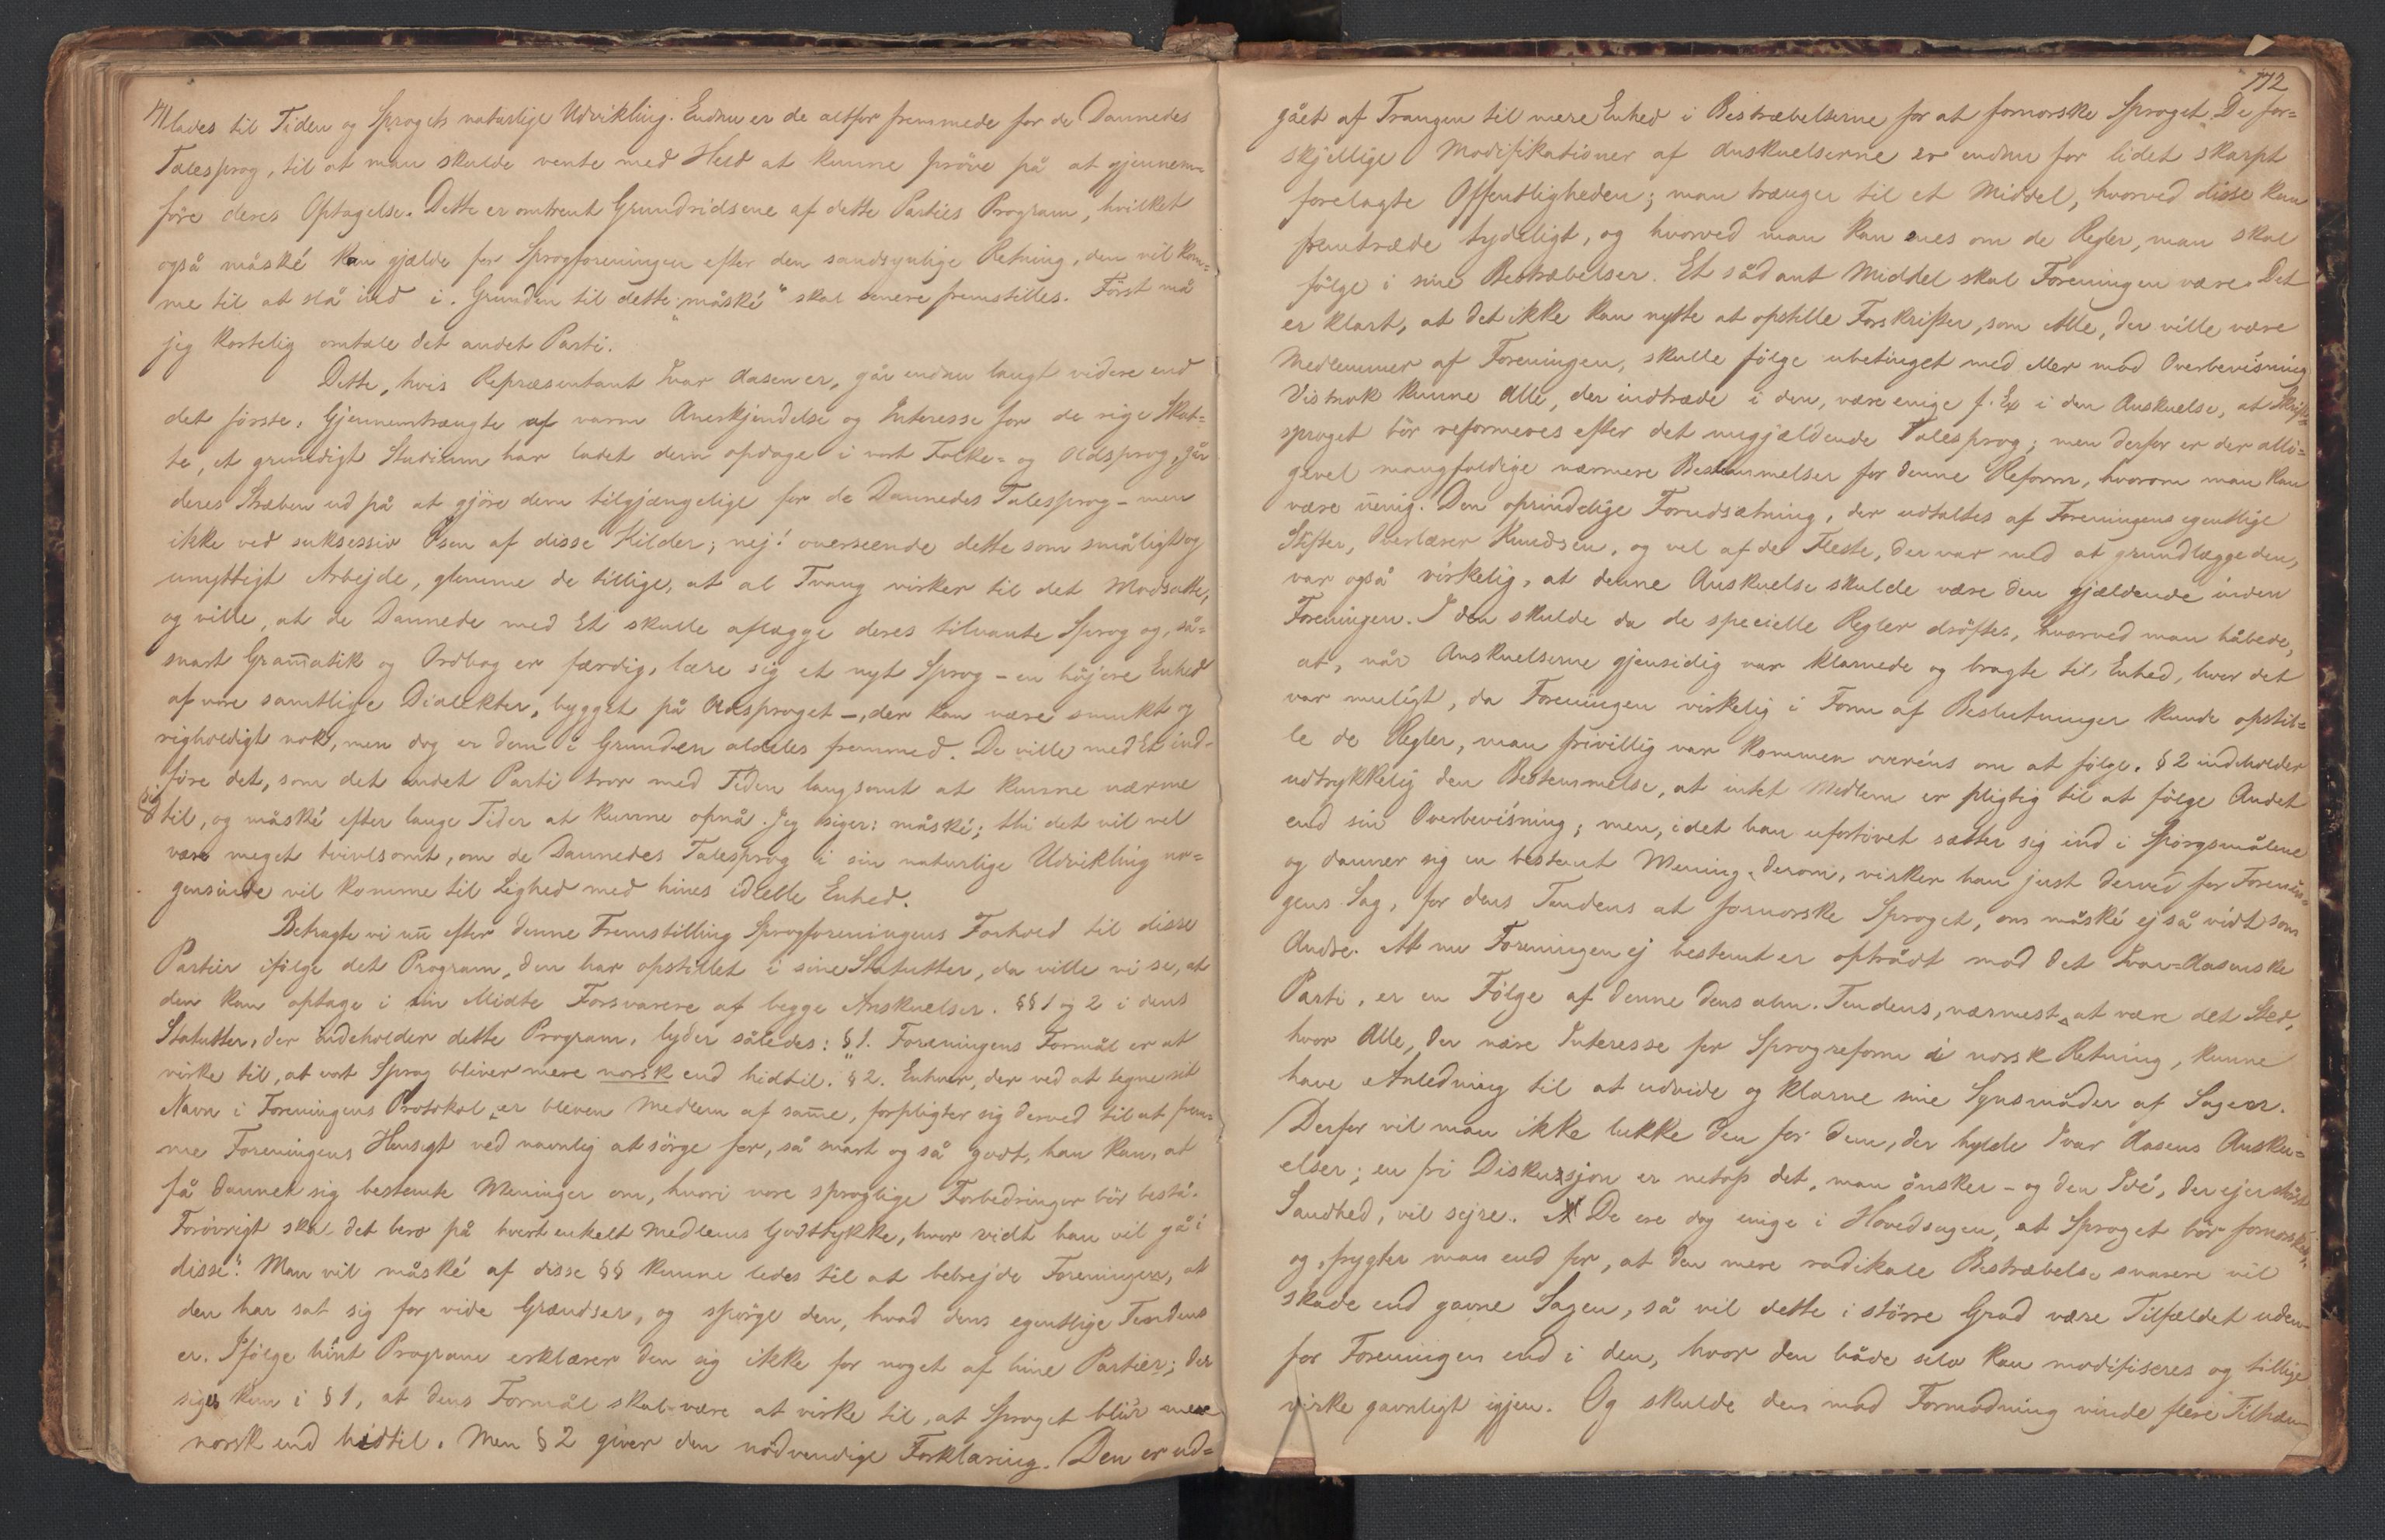 171
lades til Tiden og Sprogets naturlige Udvikling. Endnu er de altfor fremmede for de Dannedes
Talesprog, til at man skulde vente med Held at kunne pröve på at gjennem-
före deres Optagelse. Dette er omtrent Grundridsene af dette Partis Program, hvilket
også måské kan gjælde for Sprogforeningen efter den sandsynlige Retning, den vil kom-
me til at slå ind i. Grunden til dette "måské" skal senere fremstilles. Först må
jeg kortelig omtale det andet Parti.
Dette, hvis Repræsentant Ivar Aasen er, går endnu langt videre end
det förste. Gjennemtrængte af varm Anerkjendelse og Interesse for de rige Skat-
te, et grundigt Studium har ladet dem opdage i vort Folke- og Oldsprog, går
deres Stræben ud på at gjöre dem tilgjængelige for de Dannedes Talesprog – men
ikke ved suksessiv Ösen af disse Kilder; nej! overseende dette som småligt og
unyttigt Arbejde, glemme de tillige, at al Tvang virker til det Modsatte,
og ville, at de Dannede med Et skulle aflægge deres tilvante Sprog og, så-
snart Gram̅atik og Ordbog er færdig, lære sig et nyt Sprog – en höjere Enhed
af vore samtlige Dialekter, bygget på Oldsproget –, der kan være smukt og
righoldigt nok, men dog er dem i Grunden aldeles fremmed. De ville med Et ind-
före det, som det andet Parti tror med Tiden langsomt at kunne nærme
sig til, og måské efter lange Tider at kunne opnå. Jeg siger: måské; thi det vil vel
være meget tvivlsomt, om de Dannedes Talesprog i sin naturlige Udvikling no-
gensinde vil komme til Lighed med hines ideelle Enhed.
Betragte vi nu efter denne Fremstilling Sprogforeningens Forhold til disse
Partier ifölge det Program, den har opstillet i sine Statutter, da ville vi se, at
den kan optage i sin Midte Forsvarere af begge Anskuelser. §§ 1 og 2 i dens
Statutter, der indeholder dette Program, lyder således: "§ 1. Foreningens Formål er at
virke til, at vort Sprog bliver mere norsk end hidtil. § 2. Enhver, der ved at tegne sit
Navn i Foreningens Protokol, er bleven Medlem af sam̅e, forpligter sig derved til at frem-
me Foreningens Hensigt ved navnlig at sörge for, så snart og så godt, han kan, at
få dannet sig bestemte Meninger om, hvori vore sproglige Forbedringer bör bestå.
Forövrigt skal det bero på hvert enkelt Medlems Godtykke, hvor vidt han vil gå i
disse". Man vil måské af disse §§ kunne ledes til at bebrejde Foreningen, at
den har sat sig for vide Grændser, og spörge den, hvad dens egentlige Tendens
er. Ifölge hint Program erklærer den sig ikke for noget af hine Partier; der
siges kun i § 1, at dens Formål skal være at virke til, at Sproget blir mere
norsk end hidtil. Men § 2 giver den nödvendige Forklaring. Den er ud-
172
gået af Trangen til mere Enhed i Bestræbelserne for at fornorske Sproget. De for-
skjellige Modifikationer af Anskuelserne er endnu for lidet skarpt
forelagte Offentligheden; man trænger til et Middel, hvorved disse kan
fremtræde tydeligt, og hvorved man kan enes om de Regler, man skal
fölge i sine Bestræbelser. Et sådant Middel skal Foreningen være. Det
er klart, at det ikke kan nytte at opstille Forskrifter, som Alle, der ville være
Medlemmer af Foreningen, skulle fölge ubetinget med eller mod Overbevisning
Vistnok kunne Alle, der indtræde i den, være enige f. Ex i den Anskuelse, at Skrift-
sproget bör reformeres efter det nugjældende Talesprog; men derfor er der alli-
gevel mangfoldige nærmere Bestemmelser for denne Reform, hvorom man kan
være uenig. Den oprindelige Forudsætning, der udtaltes af Foreningens egentlige
Stifter, Overlærer Knudsen, og vel af de Fleste, der var med at grundlægge den,
var også virkelig, at denne Anskuelse skulde være den gjældende inden
Foreningen. I den skulde da de specielle Regler dröftes, hvorved man håbede,
at, når Anskuelserne gjensidig var klarnede og bragte til Enhed, hvor det
var muligt, da Foreningen virkelig i Form af Beslutninger kunde opstil-
le de Regler, man frivillig var kommen overéns om at fölge. § 2 indeholder
udtrykkelig den Bestemmelse, at intet Medlem er pligtig til at fölge Andet
end sin Overbevisning; men, idet han ufortövet sætter sig ind i Spörgsmålene
og danner sig en bestemt Mening derom, virker han just derved for Forenin-
gens Sag, for dens Tendens at fornorske Sproget, om måské ej så vidt som
Andre. At nu Foreningen ej bestemt er optrådt mod det Ivar-Aasenske
Parti, er en Fölge af denne dens alm. Tendens, nærmest at være det Sted,
hvor Alle, der nære Interesse for Sprogreform i norsk Retning, kunne
have Anledning til at udvide og klarne sine Synsmåder af Sagen.
Derfor vil man ikke lukke den for dem, der hylde Ivar Aasens Ansku-
elser; en fri Diskussjon er netop det, man önsker – og den Idé, der ejer störst
Sandhed, vil sejre. De ere dog enige i Hovedsagen, at Sproget bör fornorskes,
og, frygter man end for, at den mere radikale Bestræbelse snarere vil
skade end gavne Sagen, så vil dette i större Grad være Tilfældet uden-
for Foreningen end i den, hvor den både selv kan modifiseres og tillige
virke gavnligt igjen. Og skulde den mod Formodning vinde flere Tilhæn-